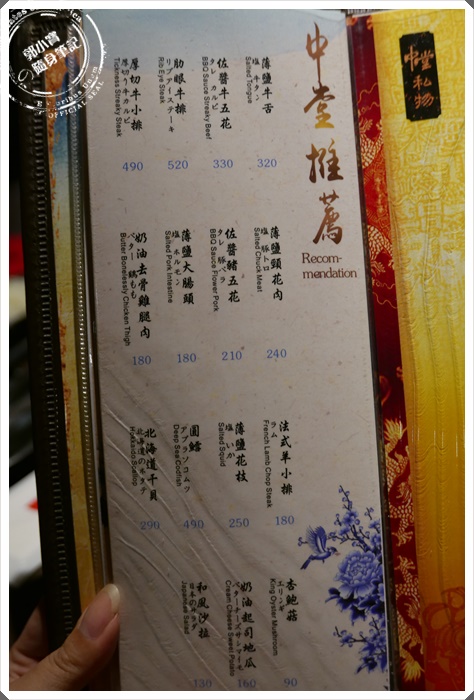 郭小寶
隨身筆記
OFFICIAL SEAL
中堂私物
中堂推薦
Recom-
mendation
薄鹽牛舌
塩 牛タン
Salted Tongue
320
佐醬牛五花
タレ カルビ
BBQ Sauce Streaky Beef
330
肋眼牛排
リブアイステーキ
Rib Eye Steak
520
厚切牛小排
厚切り牛カルビ
Tickness Streaky Steak
490
薄鹽頸花肉
塩 豚トロ
Salted Chuck Meat
240
佐醬豬五花
タレ 豚バラ
BBQ Sauce Flower Pork
210
薄鹽大腸頭
塩 ホルモン
Salted Pork Intestine
180
奶油去骨雞腿肉
バター 鶏もも
Butter Bonelessly Chicken Thigh
180
法式羊小排
ラム
French Lamb Chop Steak
180
薄鹽花枝
塩 いか
Salted Squid
250
圓鱈
アブラソコムツ
Deep Sea Codfish
490
北海道干貝
北海道のホタテ
Hokkaido Scallop
290
杏鮑菇
エリンギ
King Oyster Mushroom
90
奶油起司地瓜
Cream Cheese Sweet Potato
160
和風沙拉
日本のサラダ
Japanese Salad
130